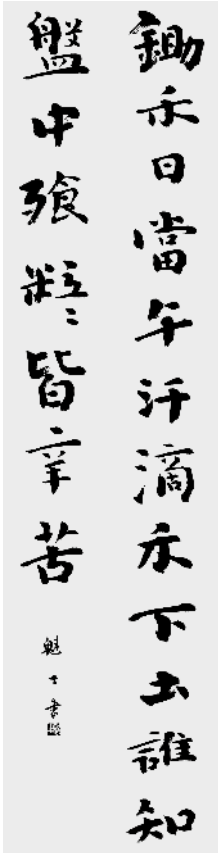 鋤禾日當午汗滴禾下土誰知
盤中飱粒〻皆辛苦
魁士書